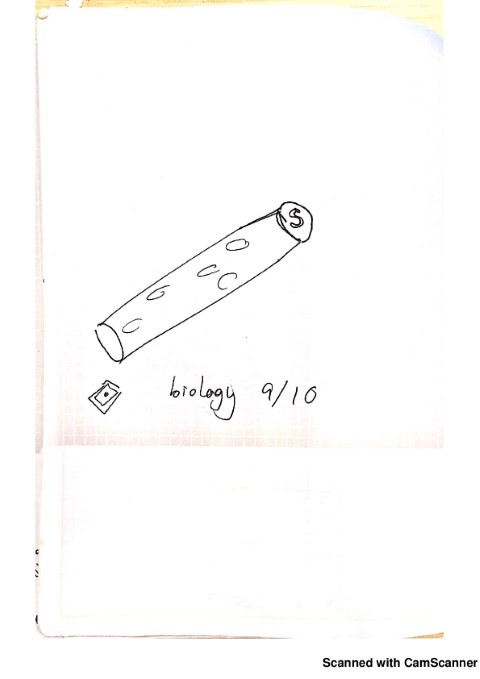 S
biology 9/10
Scanned with CamScanner